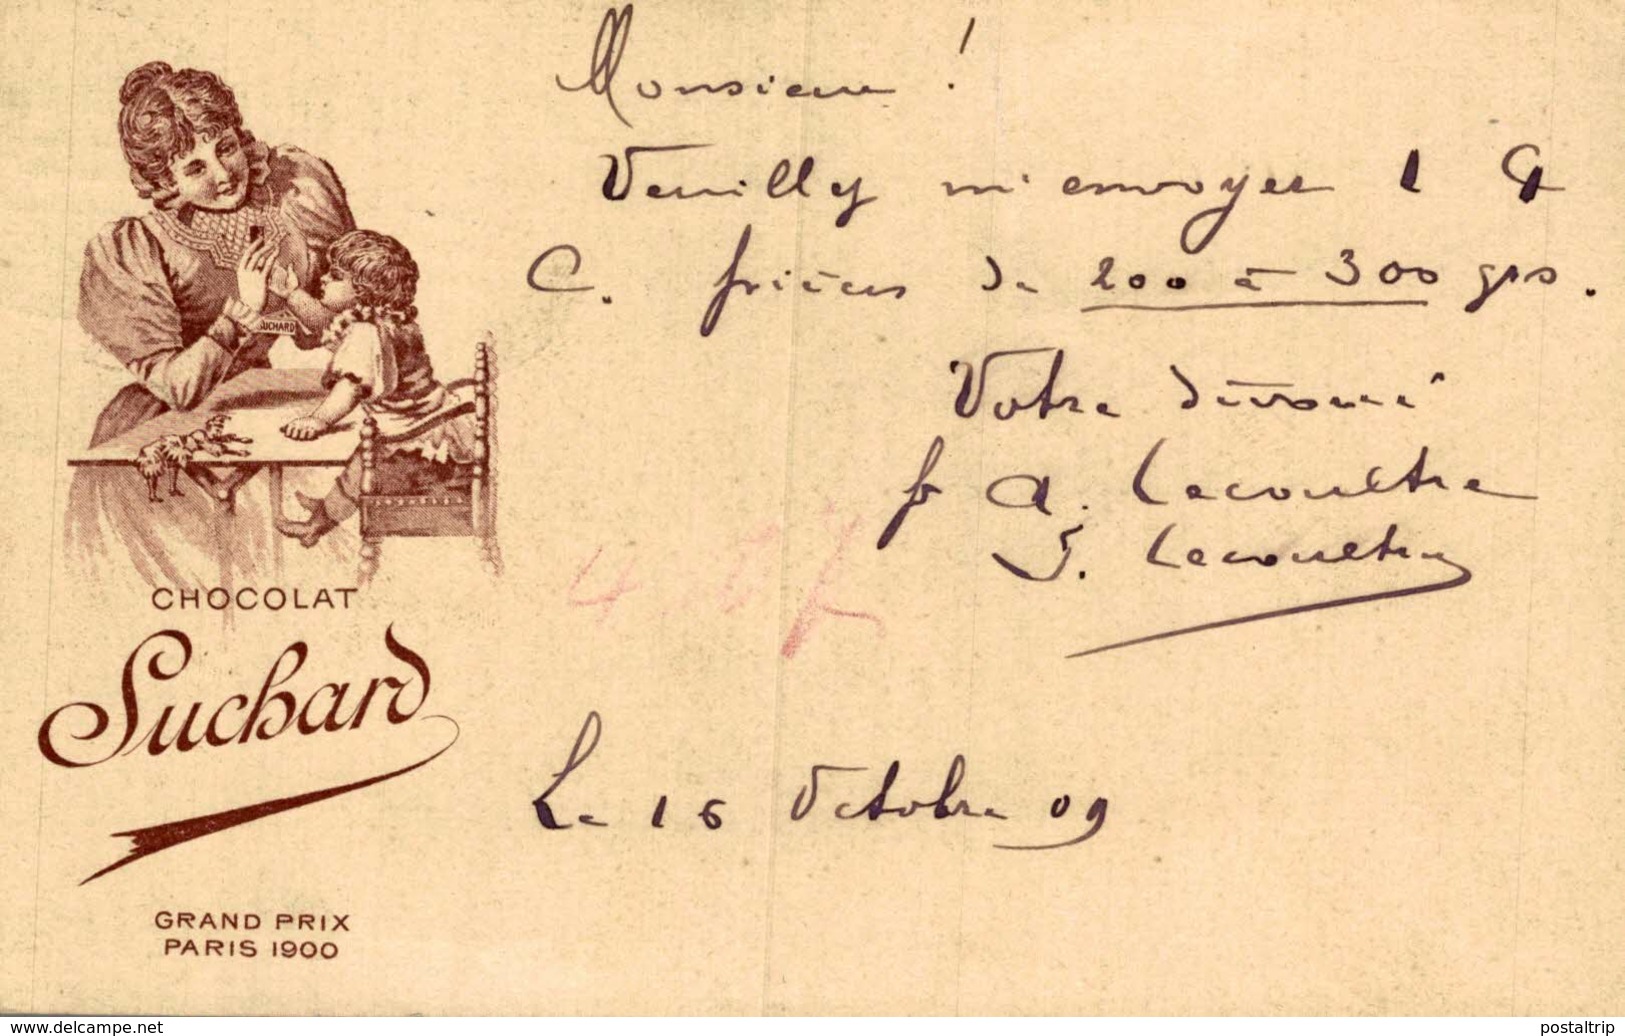 Monsieur !
Veuillez m'envoyer 1
C. frières de 200 à 300 grs.
Votre dévoué
A. Lecoultre
Lecoultre
SUCHARD
CHOCOLAT
Suchard
GRAND PRIX
PARIS 1900
Le 16 Octobre 09
www.delcampe.net
postaltrip